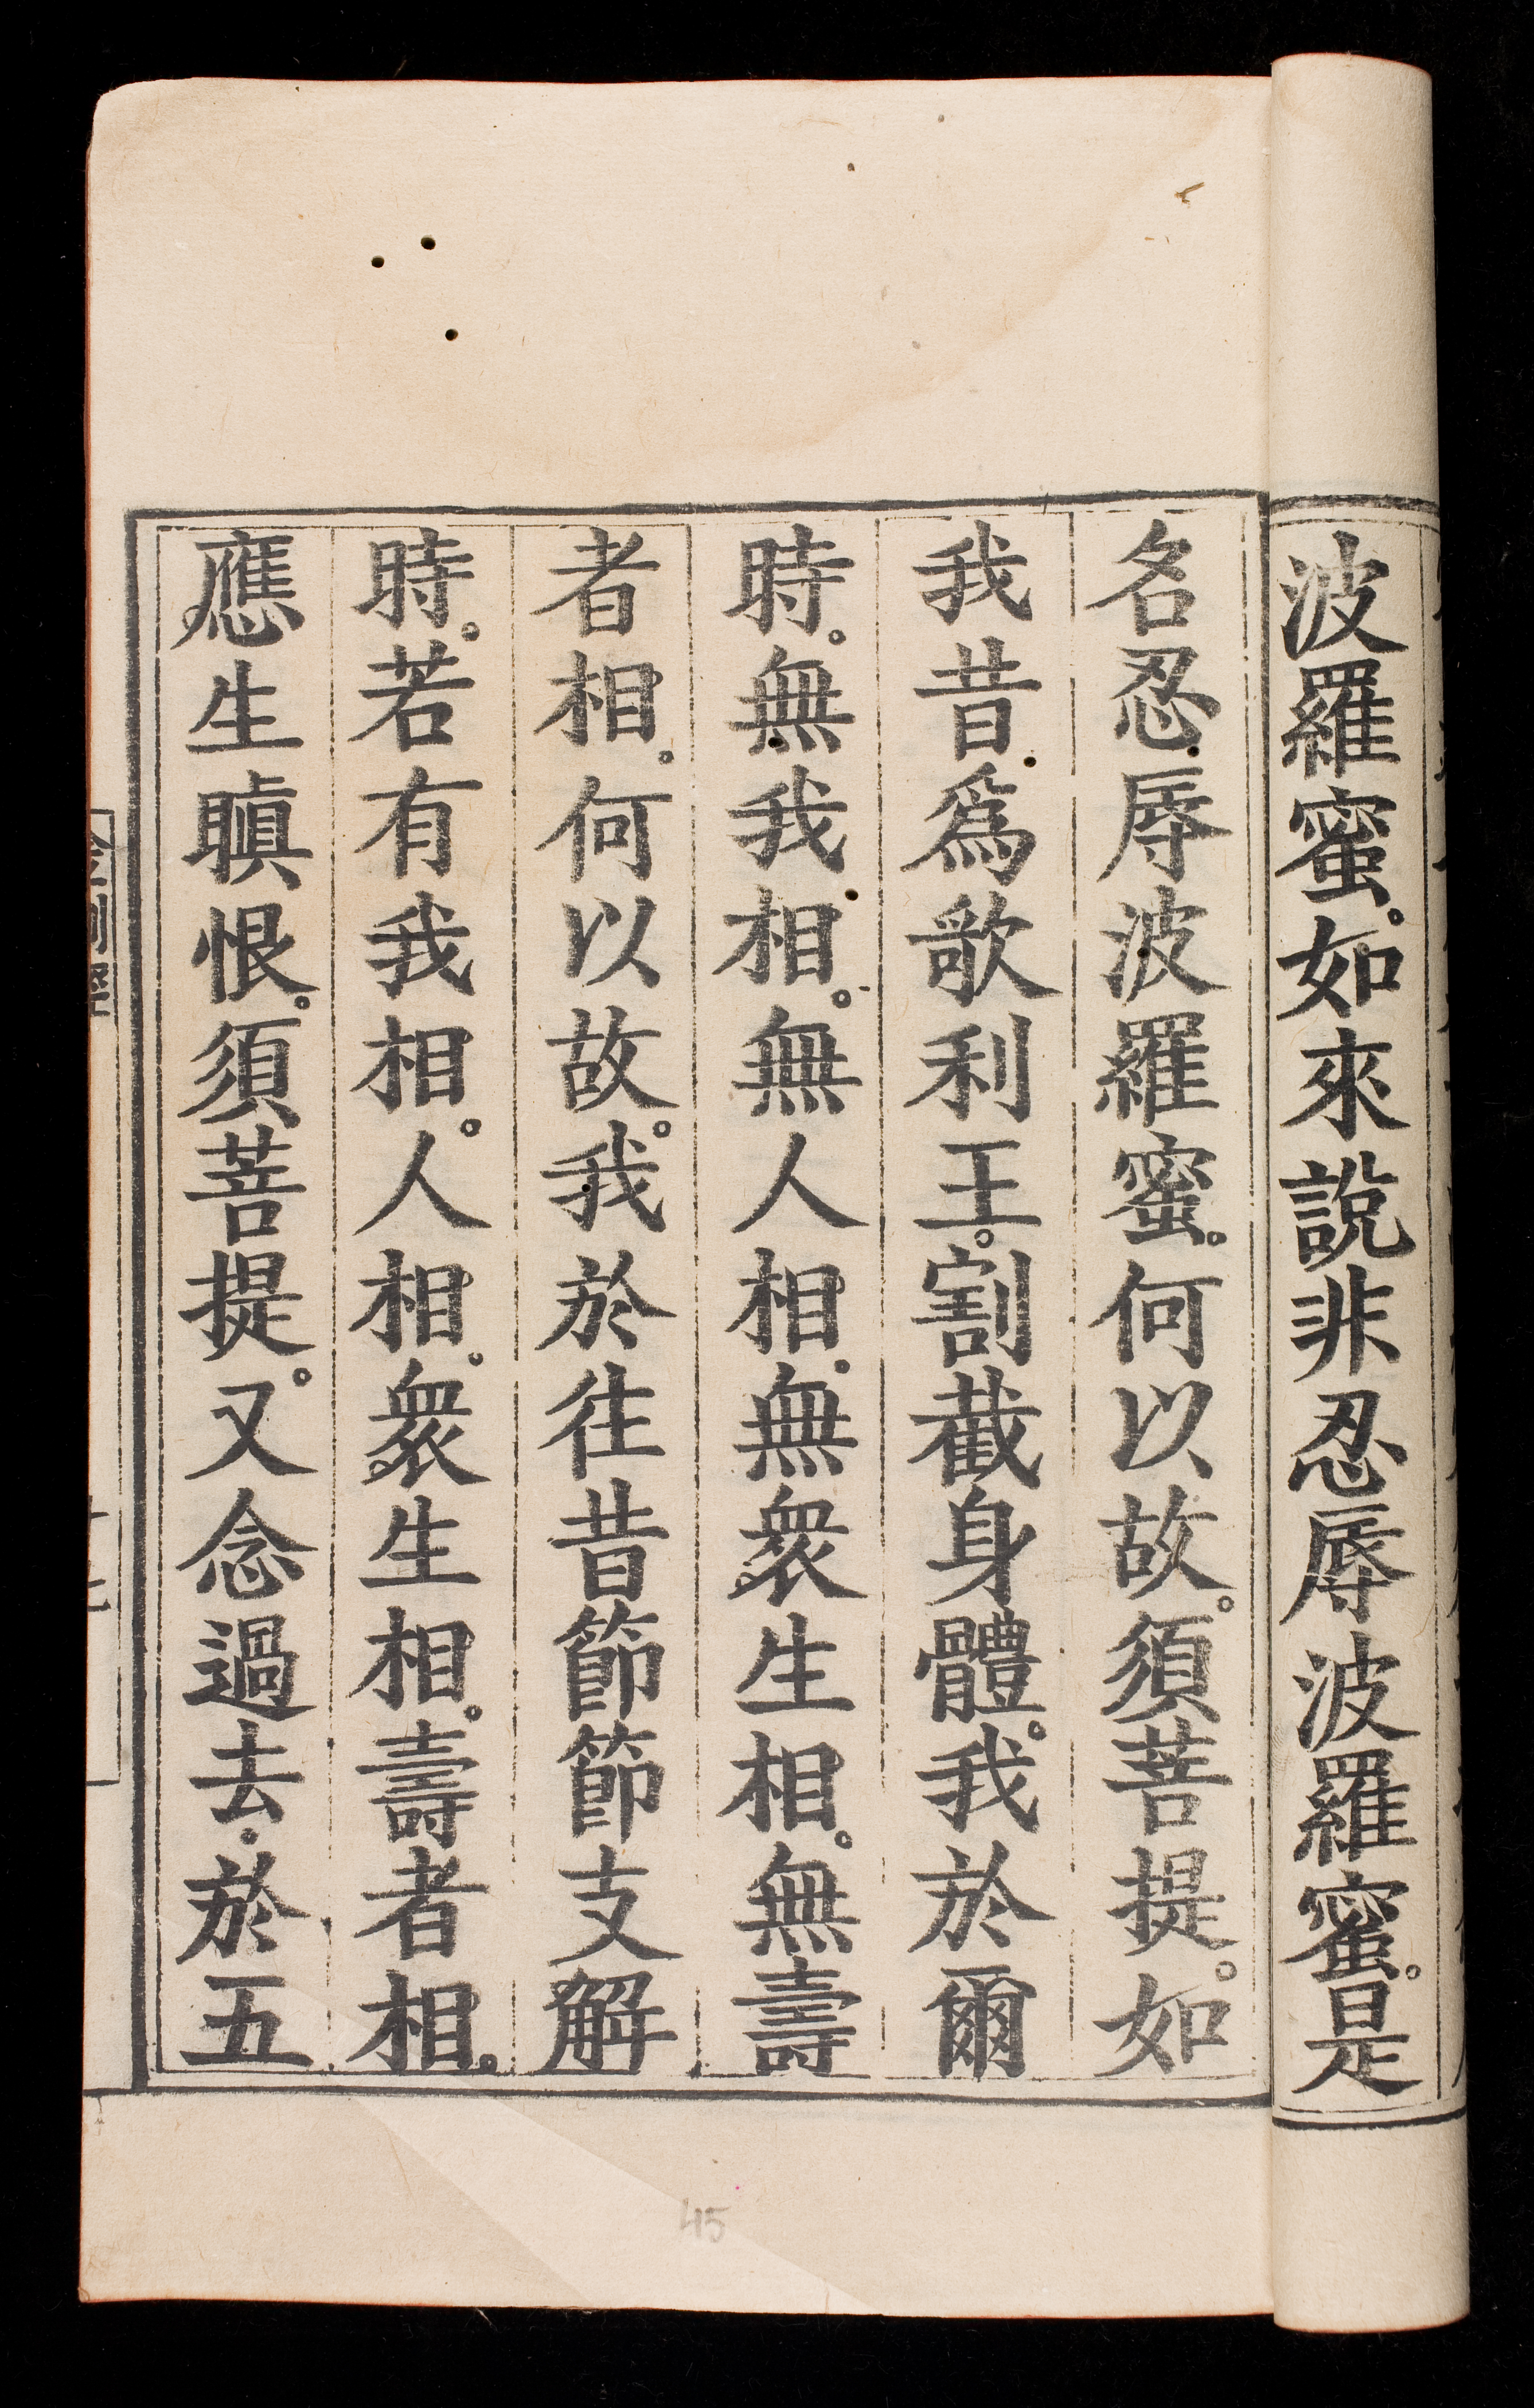 波羅蜜。如來說非忍辱波羅蜜。是
名忍辱波羅蜜。何以故。須菩提。如
我昔爲歌利王。割截身體。我於爾
時。無我相。無人相。無衆生相。無壽
者相。何以故。我於往昔節節支解
時。若有我相。人相。衆生相。壽者相。
應生瞋恨。須菩提。又念過去。於五
45